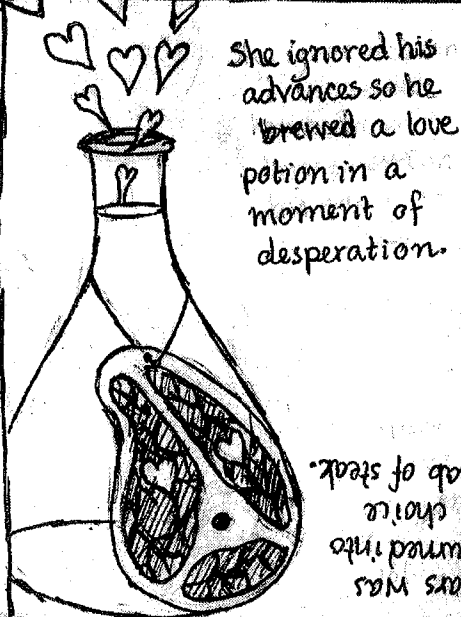 She ignored his
advances so he
brewed a love
potion in a
moment of
desperation.
ars was
urned into
choice
ab of steak.